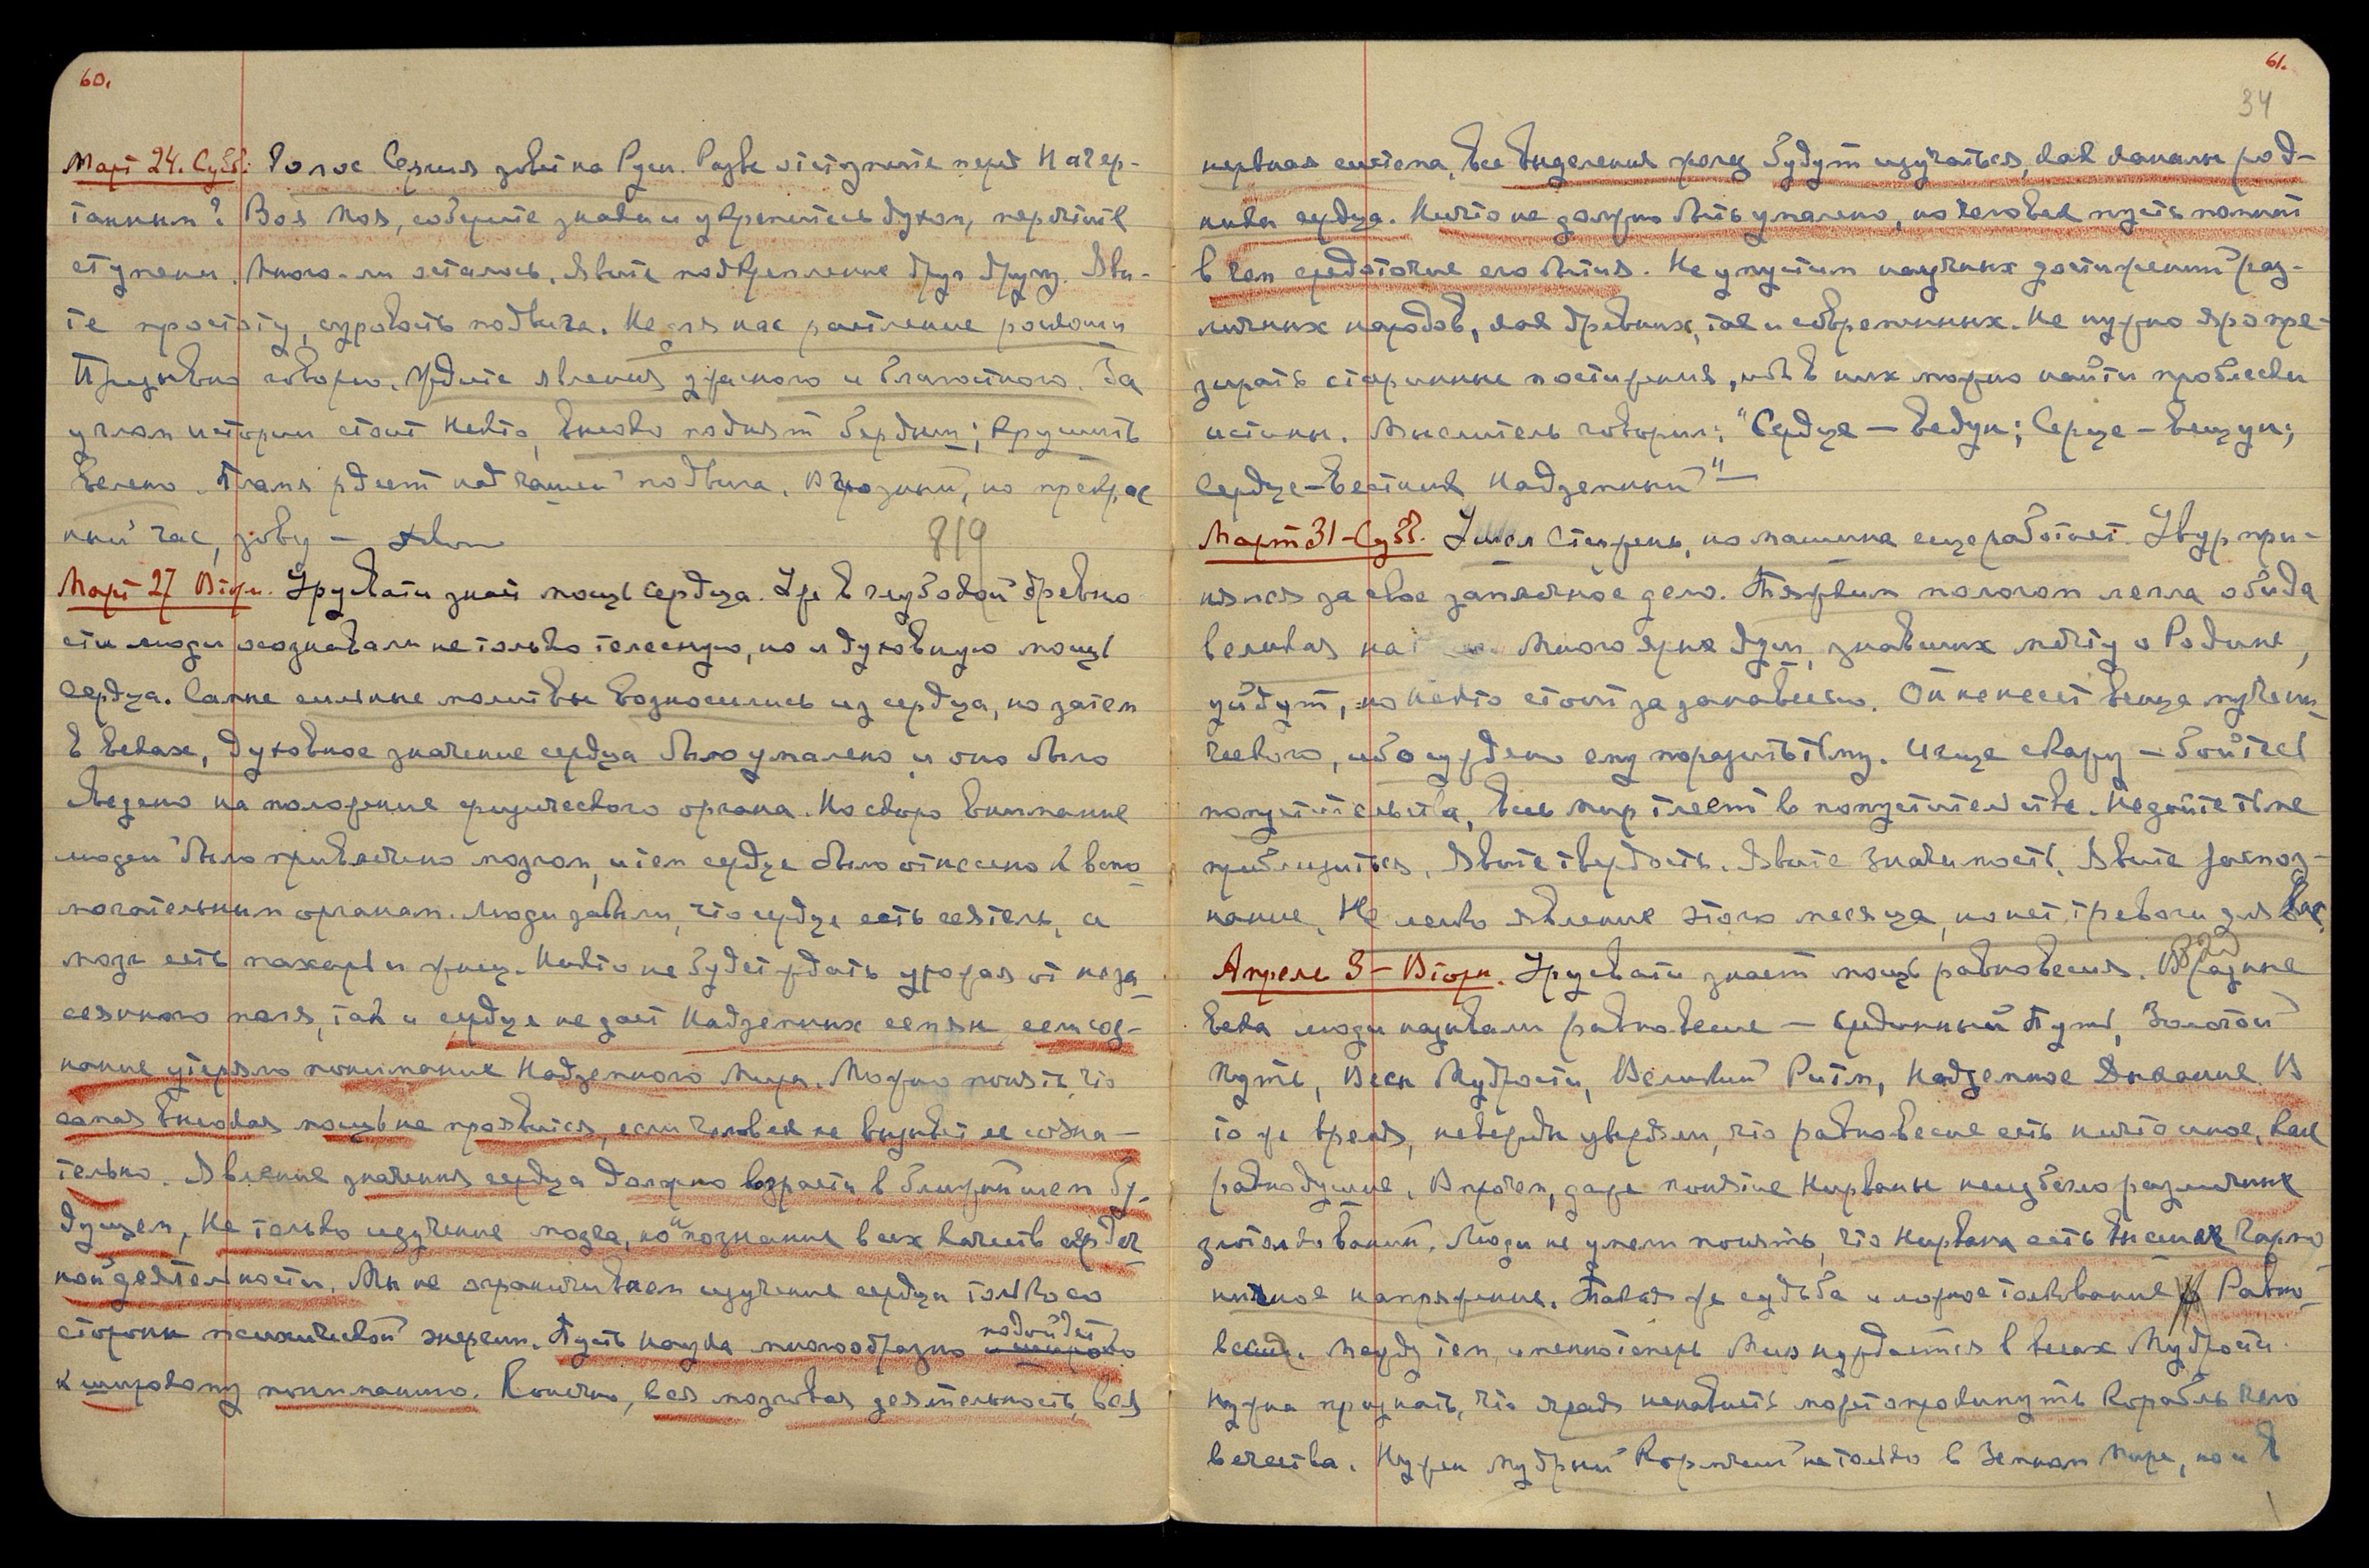 60.
Март 24. Субб: Голос Сергия зовет на Руси. Разве отступите перед Начер-
танным? Воя Моя, соберите знаки и укрепитесь духом, перечтите
ступени. Много-ли осталось. Явите подкрепление друг другу. Яви-
те простоту, суровость подвига. Не для нас растление роскоши
Призывно говорю. Ждите явления ужасного и благостного. За
углом истории стоит Некто, высоко поднят бердыш; крушить
велено. Пламя рдеет над чашей подвига. В грозный, но прекрас
ный час, зову —
819
Март 27 Вторн. Урусвати знает мощь сердца. Уже в глубокой древно
сти люди осознавали не только телесную, но и духовную мощь
сердца. Самые сильные молитвы возносились из сердца, но затем
в веках, духовное значение сердца было умалено и оно было
сведено на положение физического органа. Но скоро внимание
людей было привлечено мозгом, и тем сердце было отнесено к вспо
могательным органам. Люди забыли, что сердце есть сеятель, а
мозг есть пахарь и жнец. Никто не будет ждать урожая от неза
сеянного поля, так и сердце не дает Надземных семян, если соз-
нание утеряло понимание Надземного Мира. Можно понять, что
самая высокая мощь не проявится, если человек не вызовет ее созна-
тельно. Явление значения сердца должно возрасти в ближайшем бу-
дущем, Не только изучение мозга, но и познание всех качеств сердеч
ной деятельности. Мы не ограничиваем изучение сердца только со
стороны психической энергии. Пусть наука многообразно подойдет
к широкому пониманию. Конечно, вся мозговая деятельность, вся
61.
34
нервная система, все выделения желез будут изучаться, как каналы род-
ники сердца. Ничто не должно быть умалено, но человек пусть помнит
в чем средоточие его бытия. Не упустим научных достижений раз-
личных народов, как древних, так и современных. Не нужно яро пре-
зирать старинные постижения, ибо в них можно найти проблески
истины. Мыслитель говорил: "Сердце — Ведун; Серце — Вещун;
Сердце — Вестник Надземный" —
Март 31 - Субб. Ушел Стержень, но машина еще работает. Увур при-
нялся за свое запяточное дело. Тяжким пологом легла обида
великая на Много ярых дум, знавших мечту о Родине,
уйдут, но некто стоит за занавесью. Он не несет венца мучени
ческого, ибо суждено ему поразить тьму. Ищите свару — бойтесь
попустительства, весь мир тлеет в попустительстве. Не дайте тьме
приблизиться. Явите твердость. Явите значимость. Явите распоз-
нание. Не легко явление этого месяца, но нет тревоги для Вас.
Апрель 3 - Вторн. Урусвати знает мощь равновесия. В разные
века люди называли равновесие — срединный Путь, Золотой
Путь, Весы Мудрости, Великий Ритм, Надземное Дыхание. В
то же время, невежды уверяли, что равновесие есть ничто иное, как
равнодушие. Впрочем, даже понятие Нирваны не избегло различных
злотолкований. Люди не умели понять, что Нирвана есть высшее Гармо
ничное напряжение. Такая же судьба и ложное толкование Равно
весия. Между тем, именно теперь Мир нуждается в весах Мудрости.
Нужно признать, что ярая ненависть может опрокинуть Корабль чело
вечества. Нужен мудрый Кормчий не только в Земном Мире, но и в